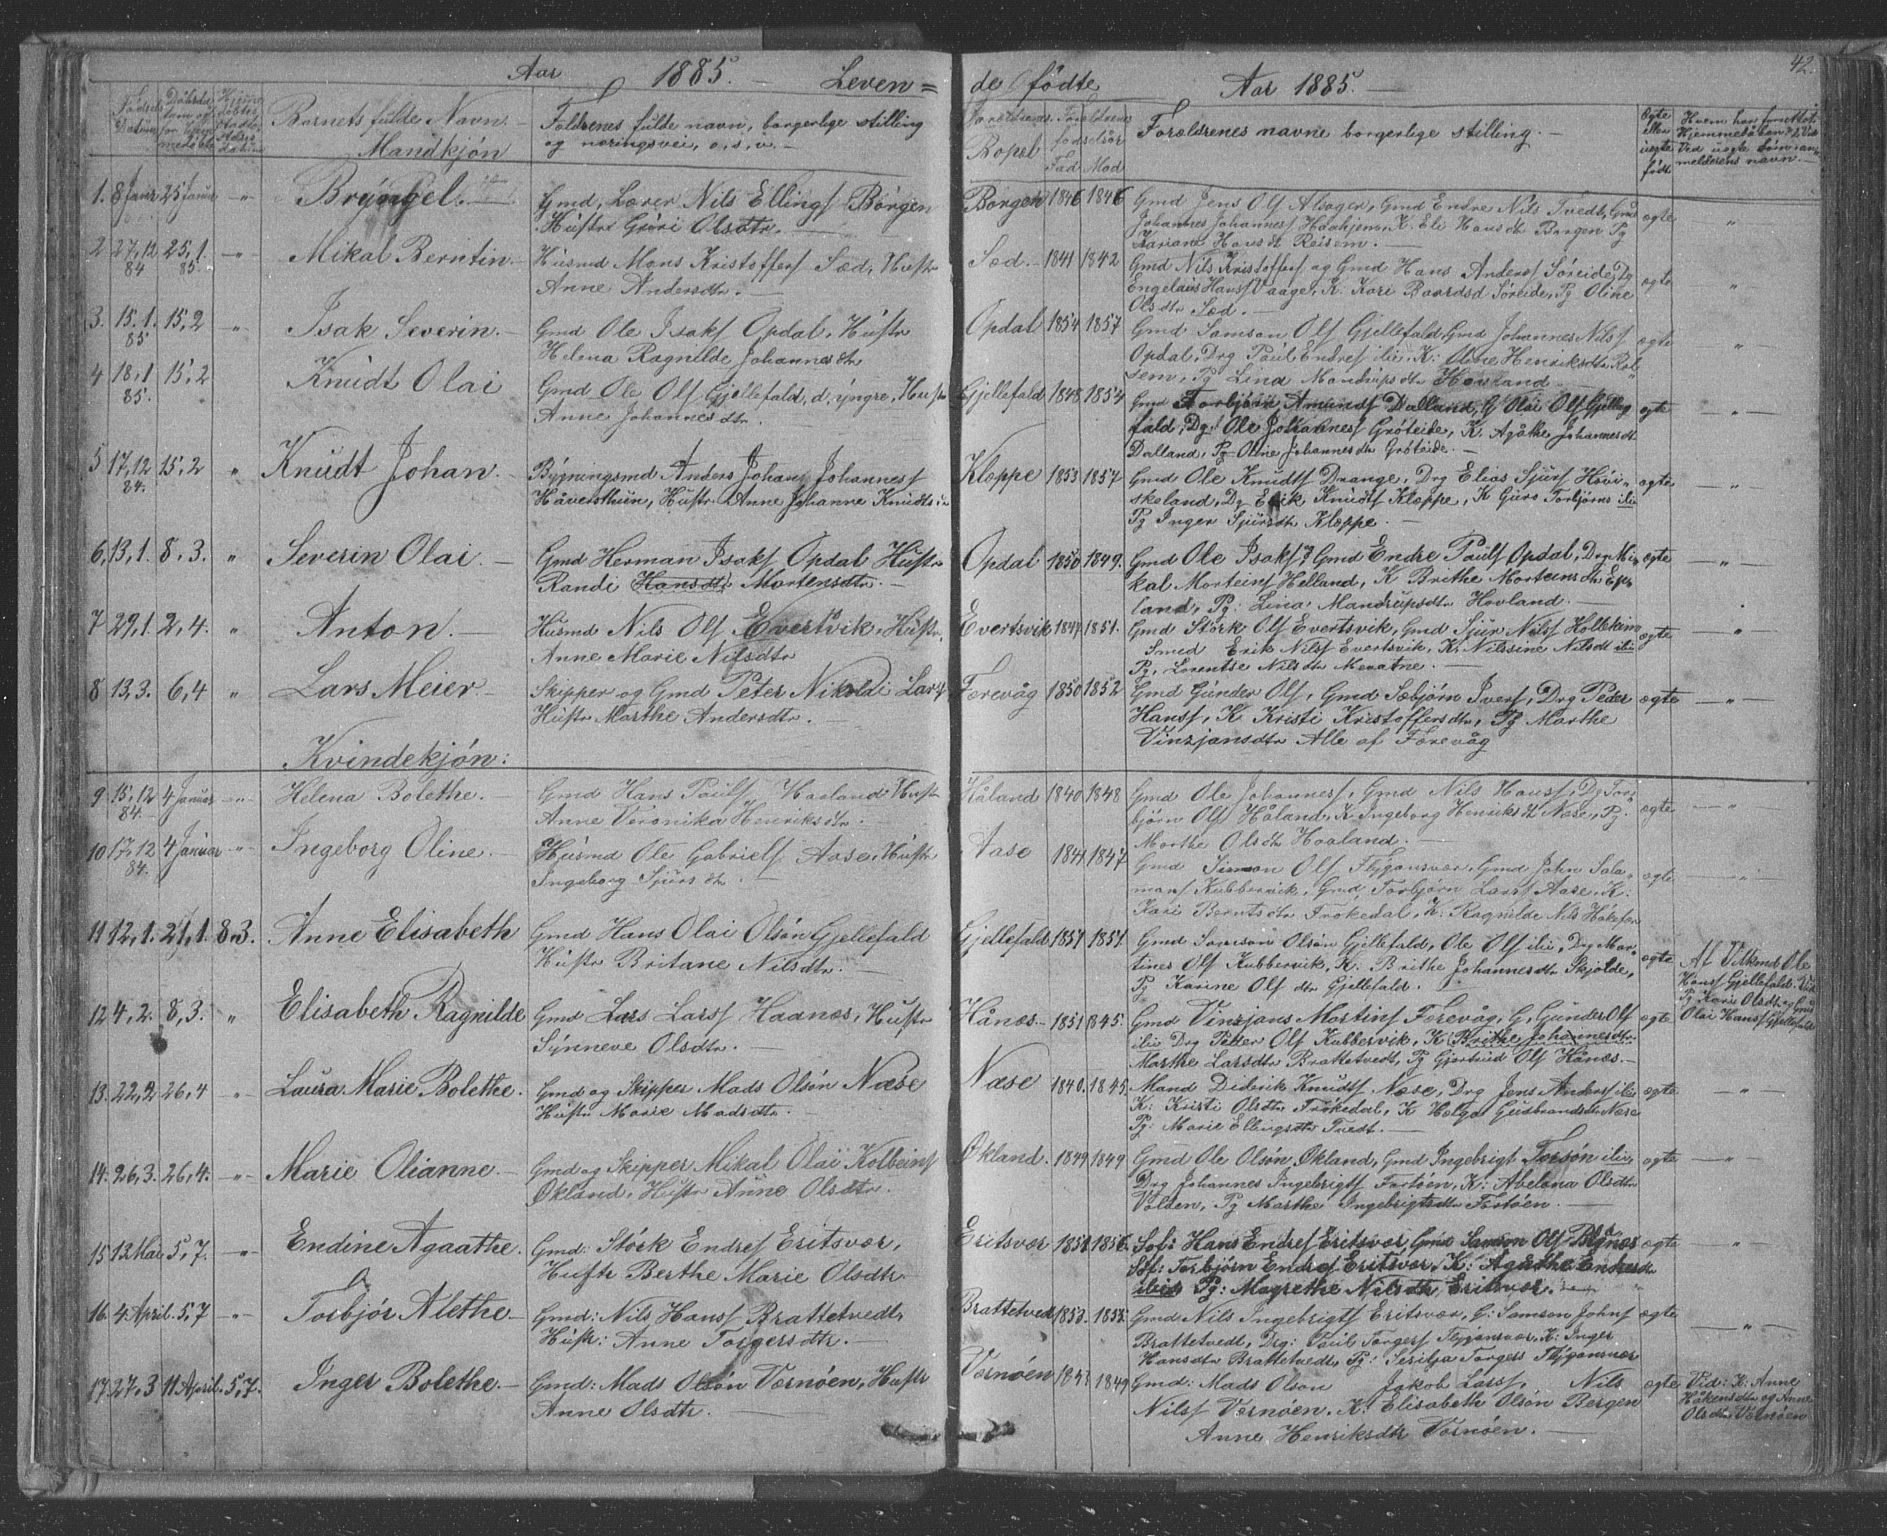 Aar 1885. Leven=
de fødte Aar 1885. 42.
Fødsels Datum
Barnets fulde Navn
Mandkjøn
Foreldrenes fulde navn, borgerlige stilling
og næringsvei, o, s, v.
Foreldrenes Bopel
Foreldrenes fødselsår Fad Mod
Forældrenes navne borgerlige stilling.
Ægte eller uegte født
Hvem har forrettet
Hjemmedåben
Ved uegte børn an-
melderens navn.
1. 8 Janr 25 Janr " Gmd, Lærer Nils Ellingsf Børgen
Hustr Gøri Olsdtr.
Børgen 1846 1846 Gmd Jens Olsf Alsager, Gmd Endre Nils Tvedt, Gmd
Johannes Johannesf Haahjem K. Eli Hansdtr Børgen Pg
Mariane Hansdtr Reisem. ægte "
2 27,12 84 25,1. 85. " Mikal Berntin Husmd Mons Kristoffersf Sæd, Hustr
Anne Andersdtr.
Sæd. 1841 1842 Gmd Nils Kristoffersf og Gmd Hans Andersf Søreide, Dg
Engelaus Hansf Vaage, K. Kari Baardsd Søreide, Pg Oline
Olsdtr Sæd. ægte "
3. 15.1. 85 15,2 " Isak Severin Gmd Ole Isaksf Opdal, Hustr
Helena Ragnilde Johannesdtr
Opdal 1854 1857 Gmd Samson Olsf Gjellefald, Gmd Johannes Nilsf
Opdal, Drg Paul Endresf ibi, K: Oline Henriksdtr Røl-
sem, Pg Lina Mandrupsdtr Hovland. ægte "
4 18,1 85. 15,2 Knudt Olai Gmd Ole Olsf Gjellefald, d, yngre, Hustr
Anne Johannesdtr.
Gjellefald 1848 1854 Gmd Torbjørn Amundsf Dalland, G Olai Olsf Gjelle-
fald, Dg: Ole Johannesf Grøteide, K. Agåthe Johannesdt
Dalland, Pg Oline Johannesdtr Grøteide. ægte "
5 17,12 84. 15,2 " Knudt Johan Bygningsmd Anders Johan Johannesf
Håversthun, Hustr Anne Johanne Knudtsdtr
Kloppe 1853 1857 Gmd Ole Knudtsf Drange, Drg Elias Sjursf Høvi-
skeland, Dg Erik Knudtsf Kloppe, K Guro Torbjørns ibi
Pg Inger Sjursdtr Kloppe. ægte "
6, 13,1. 8,3. " Severin Olai Gmd Herman Isaksf Opdal Hustr
Randi Hansdtr Mortensdtr.
Opdal 1850 1849. Gmd Ole Isaksf, Gmd Endre Paulsf Opdal, Drg Mi-
kal Morteinsf Helland, K Brithe Morteinsdtr Ep-
land, Pg: Lina Mandrupsdtr Hovland. ægte "
7 29,1. 2,4. " Anton. Husmd Nils Olsf Evertsvik, Hustr,
Anne Marie Nilsdtr
Evertsvik 1847 1851. Gmd Størk Olsf Evertsvik, Gmd Sjur Nilsf Hollekim
Smed Erik Nilsf Evertsvik, K. Nilssine Nilsdt ibi
Pg, Lorentse Nilsdtr Mevatne. ægte "
8 13,3. 6,4 " Lars Meier Skipper og Gmd Peter Nikolai Larsf
Hustr Marthe Andersdtr.
Forevåg 1850 1852 Gmd Gunder Olsf, Gmd Sæbjørn Iversf, Drg Peder
Hansf, K Kristi Kristoffersdtr, Pg Marthe
Vinzjansdtr Alle af Forevåg ægte "
Kvindekjøn:
9 15,12 84. 4 Januar " Helena Bolethe. Gmd Hans Paulsf Haaland Hustr
Anne Veronika Henriksdtr.
Håland 1840 1848 Gmd Ole Johannesf, Gmd Nils Hansf, Dg Tor-
bjørn Olsf Håland, K Ingeborg Henriksdt Næse, Pg.
Marthe Olsdtr Haaland. ægte "
10 17,12 84. 4 Januar " Ingeborg Oline. Husmd Ole Gabrielsf Aase, Hustr
Ingeborg Sjursdtr.
Aase 1841 1847 Gmd Simon Olsf Flygansvær, Gmd John Sala-
mansf Kubbervik, Gmd Torbjørn Larsf Aase, K:
Kari Berntsdtr Trøkedal, K: Ragnilde Nils Håkefær ægte "
11 12,1. 21,1 8,3. Anne Elisabeth Gmd Hans Olai Olsøn Gjellefald
Hustr Britane Nilsdtr.
Gjellefald 1857 1851 Gmd Samson Olsøn Gjellefald, Ole Olsf ibi, Drg Mar-
tines Olsf Kubbervik, K: Brithe Johannesdtr Skjolde,
Pg Karine Olsfdtr Gjellefald. ægte Af Vilkmd Ole
Hansf Gjellefald. Vid
Pg Kari Olsdtr og Gmd
Olai Hansf Gjellefald
12 4,2. 8,3. " Elisabeth Ragnilde Gmd Lars Larsf Haanæs, Hustr
Synneve Olsdtr.
Hånæs 1851 1845. Gmd Vinzjans Mortinsf Forevåg, G, Gunder Olsf
ibi Drg Petter Olsf Kubbervik, K Brithe Johannesdtr
Marthe Larsdtr Brattetvedt, Pg Gjertrud Olsf Hånæs. ægte
13. 22,2 26,4 " Laura Marie Bolethe. Gmd og Skipper Mads Olsøn Næse
Hustr Marie Madsdtr.
Næse 1840. 1845. Mand Diderik Knudtsf Næse, Drg Jens Andersf ibi
K: Kristi Olsdtr Trøkedal, K Helga Gusbrandsdtr Næse
Pg: Marie Ellingsdtr Tvedt. ægte "
14. 26,3. 26,4. " Marie Olianne. Gmd og Skipper Mikal Olai Kolbeinsf
Økland, Hustr Anne Olsdtr.
Økland. 1849 1849 Gmd Ole Olsøn Økland, Gmd Ingebrigt Torsøn ibi,
Drg Johannes Ingebrigtsf Førtøen, K: Abelona Olsdtr
Volden, Pg Marthe Ingebrigtsdtr Førtøen. ægte "
15 13 Mai 5,7. " Endine Agaathe. Gmd: Størk Endresf Eritsvær,
Hustr Berthe Marie Olsdtr
Eritsvær 1851 1856. Hans Endresf Eritsvær, Gmd Samson Olsf
Torbjørn Endresf Eritsvær, K: Agathe Endresdtr
ibid Pg: Magrethe Nilsdtr Eritsvær. ægte "
16. 4 April. 5,7 " Torbjør Alethe Gmd: Nils Hansf Brattetvedt,
Hustr: Anne Torgersdtr.
Brattetvedt 1853. 1855. Gmd Nils Ingebrigtsf Eritsvær, G: Samson Johnsf
Brattetvedt, Drg: Paul Torgersf Flygansvær, K: Inger
Hansdtr Brattetvedt, Pg: Serilja Torgers Flygansvær ægte "
17 27,3 11 April. 5,7. Inger Bolethe. Gmd: Mads Olsøn Vornøen, Hustr
Anne Olsdtr.
Vornøen 1849 Gmd: Mads Olson Jakob Larsf, Nils
Nilsf Vernøen. K: Elisabeth Olsøn Bergen
Anne Henriksdtr Vornøen. ægte Vid: K: Anne
Håkensdtr og Anne
Olsdtr Vornøen